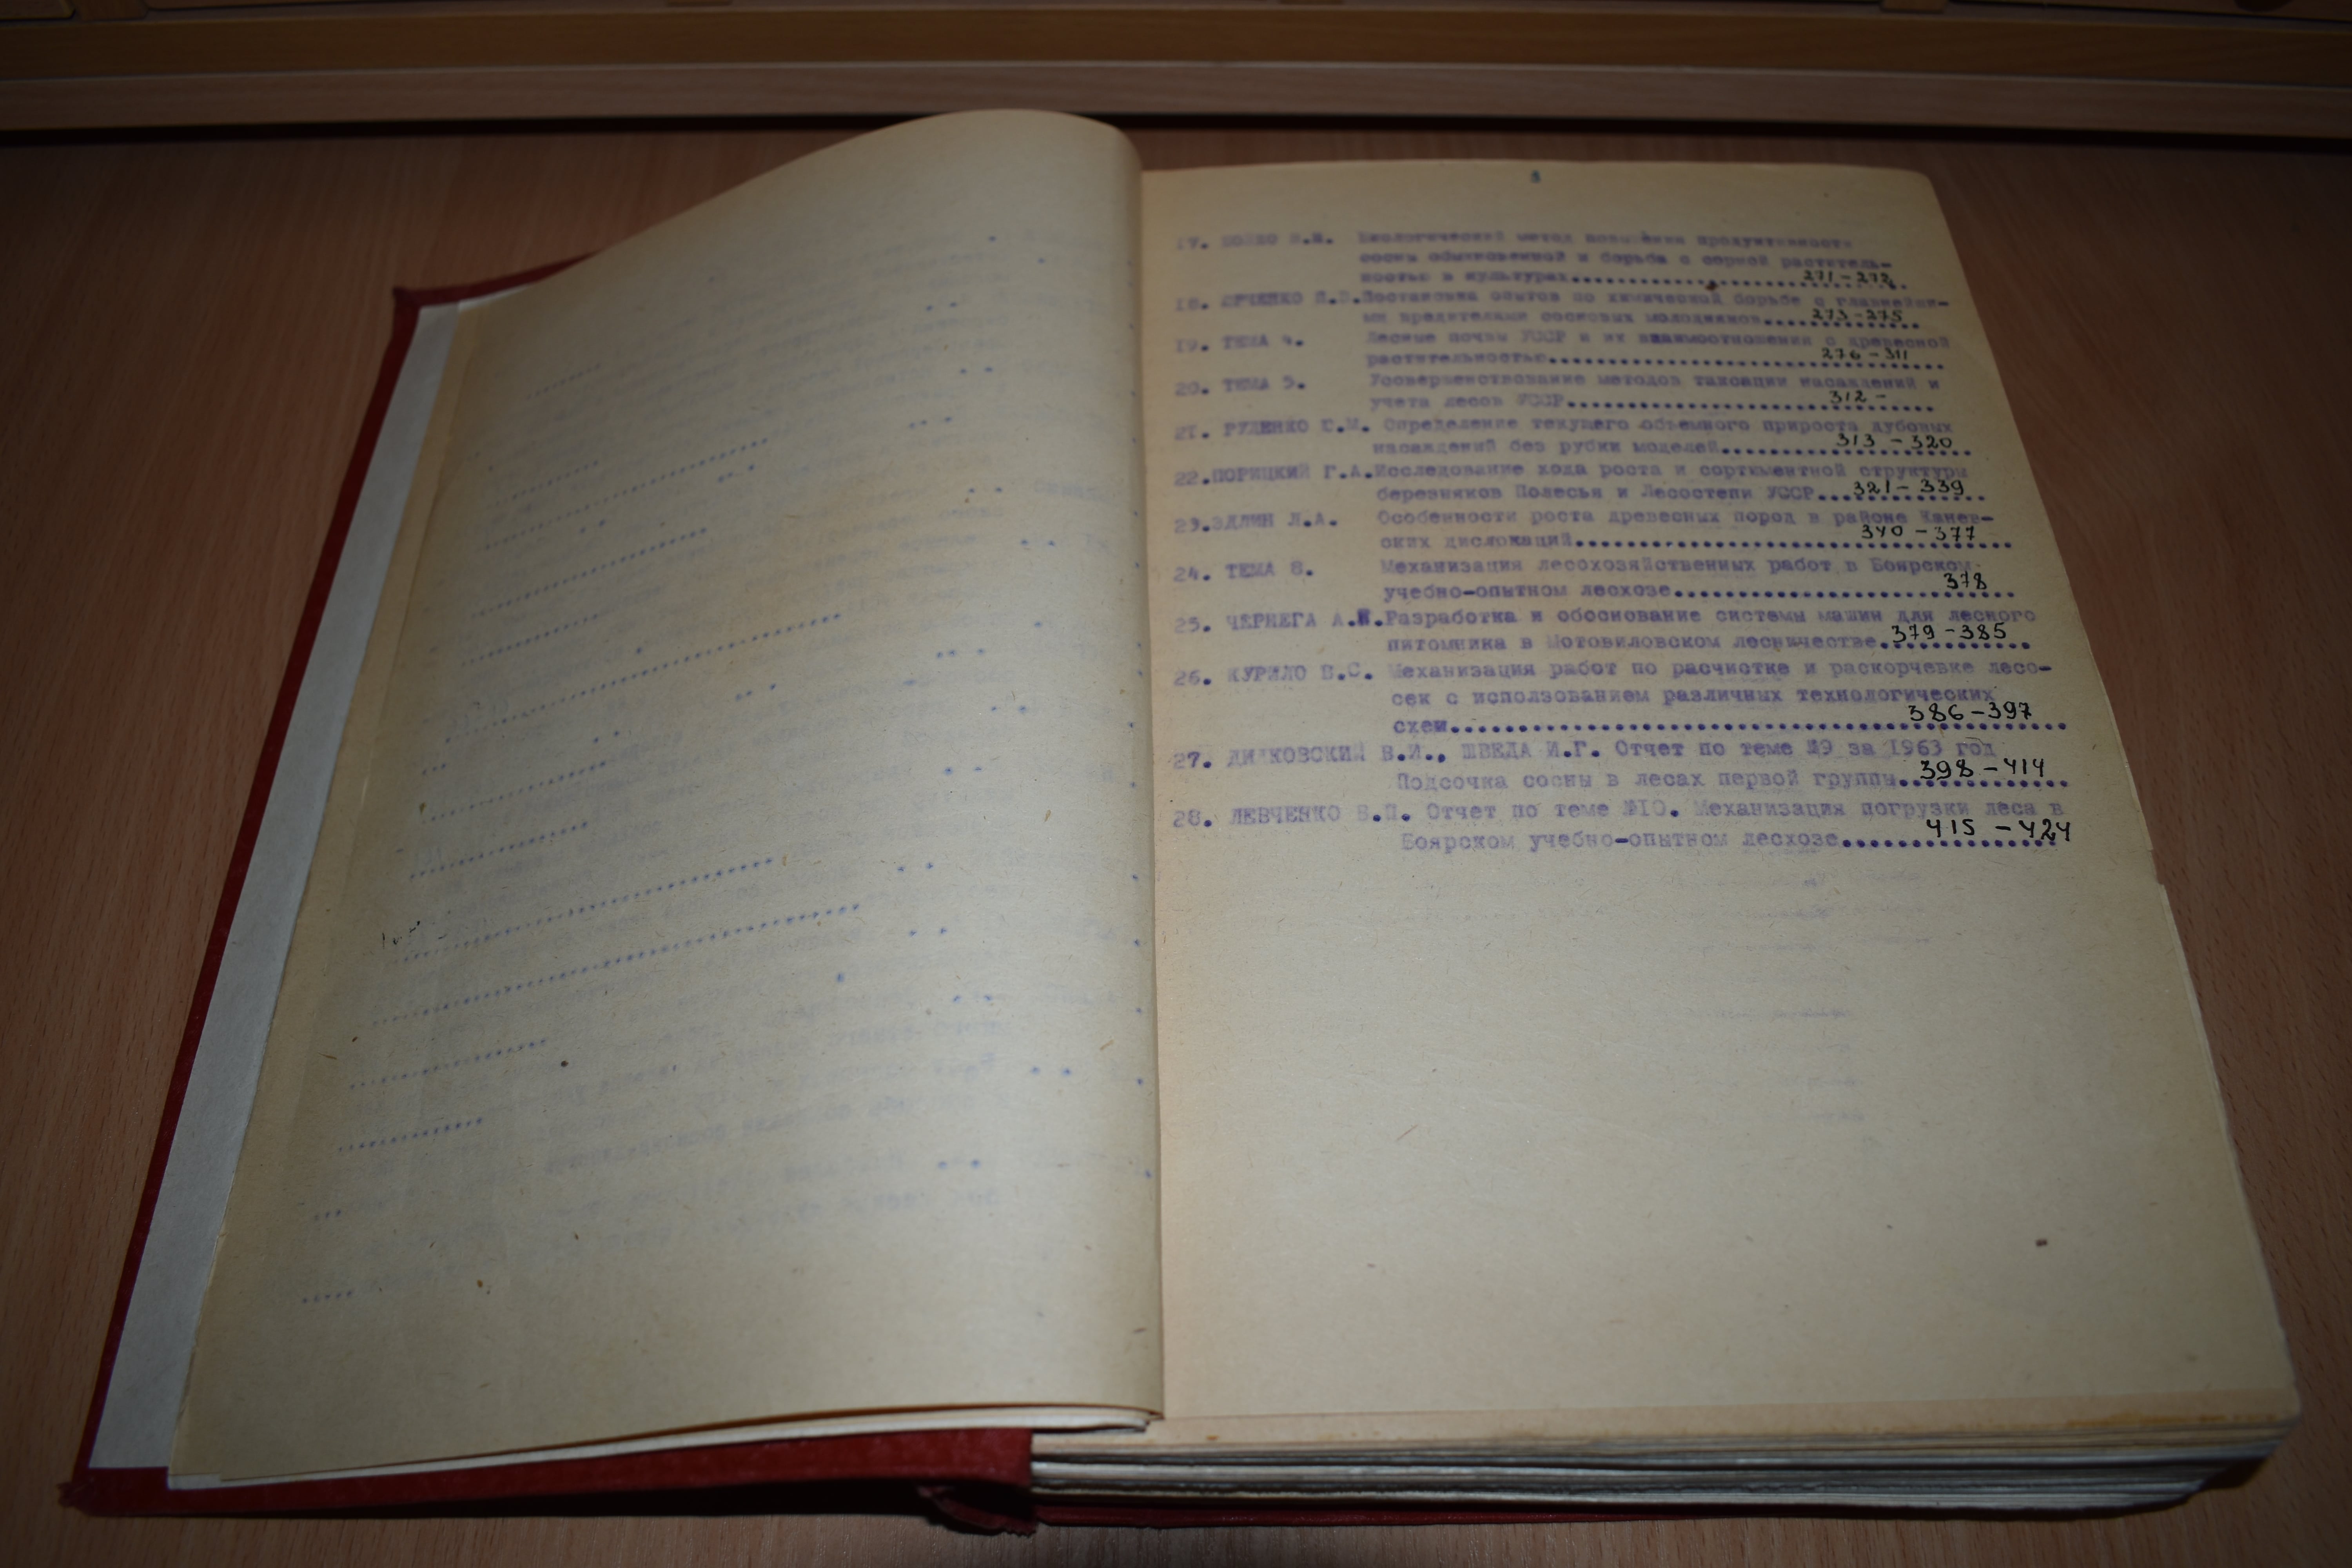 3
17. БОЙКО В.И. Биологический метод повышения продуктивности
сосны обыкновенной и борьба с сорной раститель-
ностью в культурах..............271-272
18. ЮРЧЕНКО Постановка опытов по химической борьбе с главнейши-
ми вредителями сосновых молодняков......273-275
19. ТЕМА 4. Лесные почвы УССР и их взаимоотношения с древесной
растительностью..............276-311
20. ТЕМА 5. Усовершенствование методов таксации насаждений и
учета лесов УССР..............312-
21. РУДЕНКО С.М. Определение текущего объемного прироста дубовых
насаждений без рубки моделей........313-320
22.ПОРИЦКИЙ Г.А.Исследование хода роста и сортиментной структуры
березняков Полесья и Лесостепи УССР....321-339
23.ЭДЛИН Л.А. Особенности роста древесных пород в районе Канев-
ских дислокаций..............340-377
24. ТЕМА 8. Механизация лесохозяйственных работ в Боярском
учебно-опытном лесхозе..............378
25. ЧЕРНЕГА А.И.Разработка и обоснование системы машин для лесного
питомника в Мотовиловском лесничестве.379-385
26. КУРИЛО В.С. Механизация работ по расчистке и раскорчевке лесо-
сек с исползованием различных технологических
схем..............386-397
27. В.И., ШВЕДА И.Г. Отчет по теме №9 за 1963 год
Подсочка сосны в лесах первой группы..398-414
28. ЛЕВЧЕНКО В.П. Отчет по теме №10. Механизация погрузки леса в
Боярском учебно-опытном лесхозе......415-424